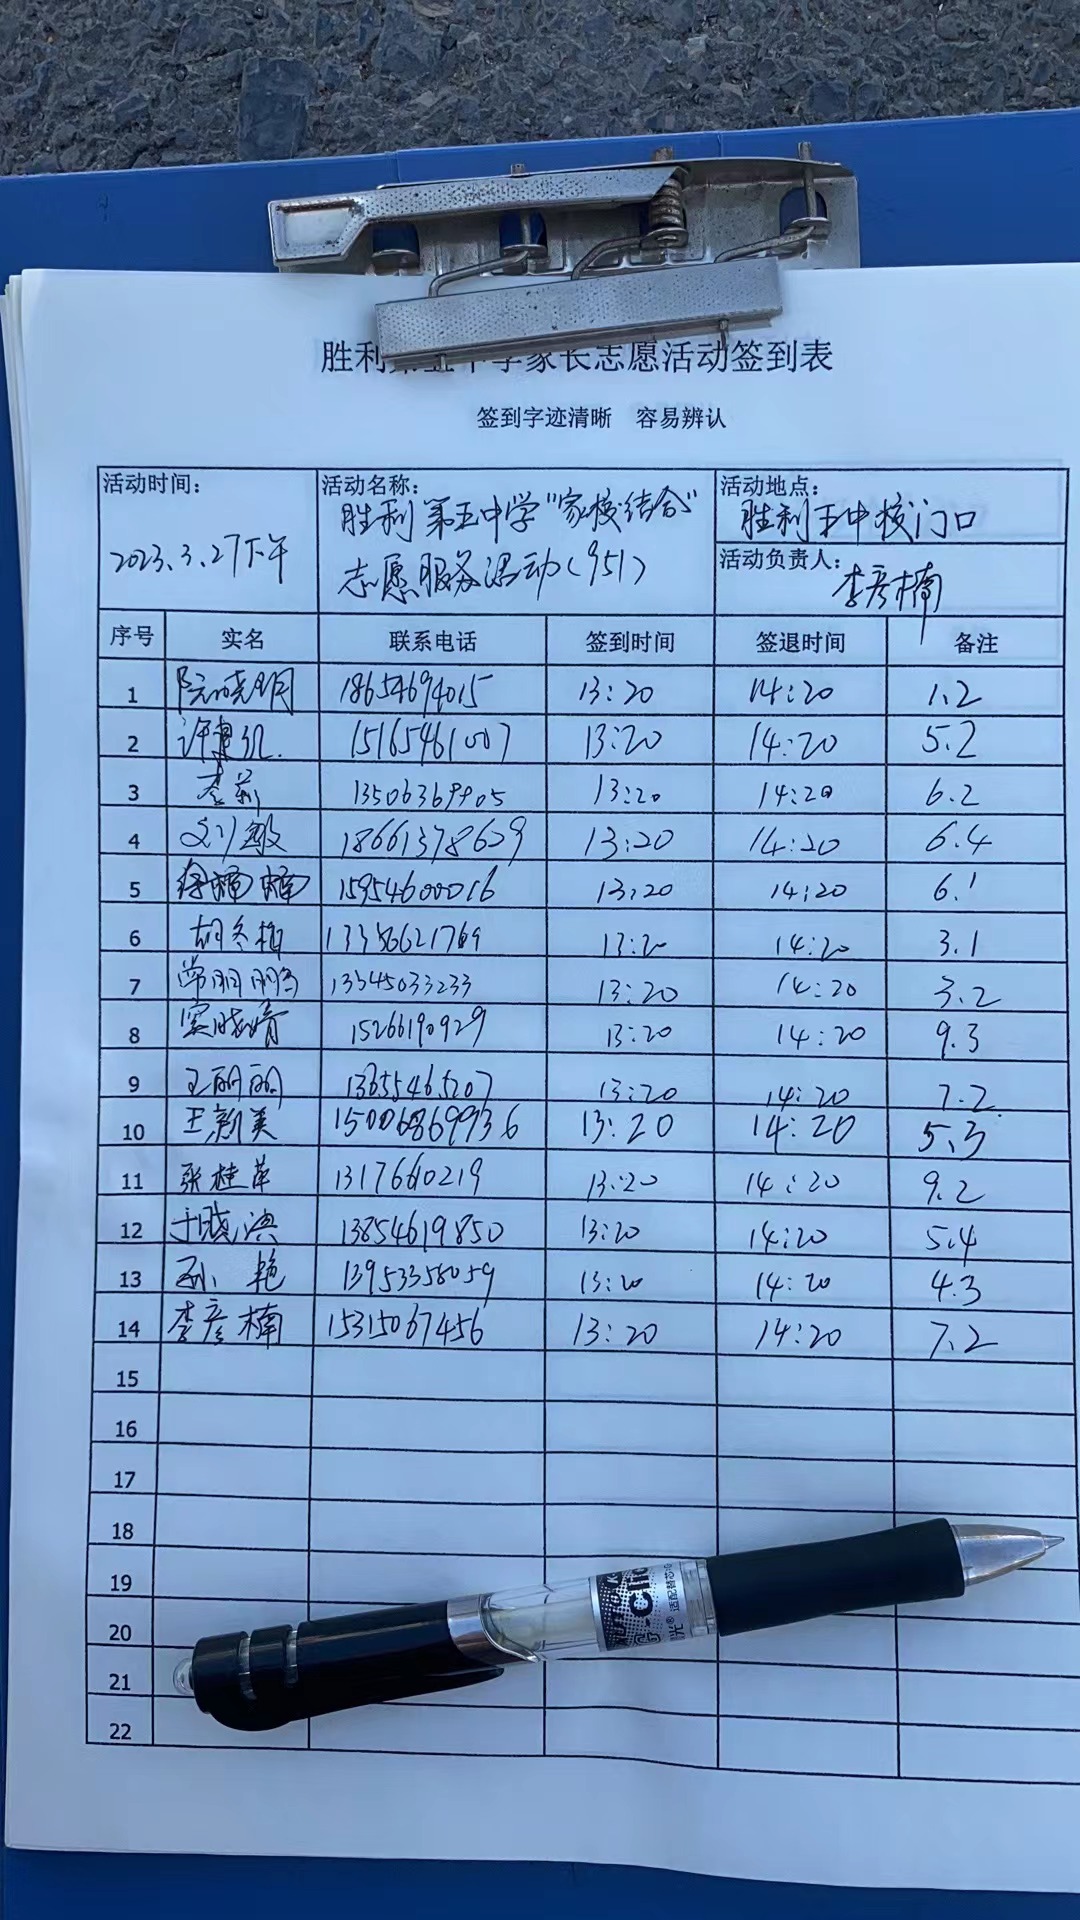 胜利第五中学家长志愿活动签到表
签到字迹清晰 容易辨认
活动时间: 2023.3.27下午
活动名称: 胜利第五中学“家校结合”
志愿服务活动(951)
活动地点: 胜利五中校门口
活动负责人: 李彦楠
序号 实名 联系电话 签到时间 签退时间 备注
1 阮晓明 18654694015 13:20 14:20 1.2
2 15165461007 13:20 14:20 5.2
3 李莉 13:20 14:20 6.2
4 刘敏 18661378629 13:20 14:20 6.4
5 徐楠楠 15954600016 13:20 14:20 6.1
6 胡冬梅 13:20 14:20 3.1
7 常丽鹏 13345033233 13:20 14:20 3.2
8 窦晓婧 15266190929 13:20 14:20 9.3
9 王丽丽 13655465207 13:20 14:20 7.2
10 王新美 13:20 14:20 5.3
11 张桂苹 13:20 14:20 9.2
12 13854619850 13:20 14:20 5.4
13 孙艳 13953358059 13:20 14:20 4.3
14 李彦楠 15315067456 13:20 14:20 7.2
15
16
17
18
19
20
21
22